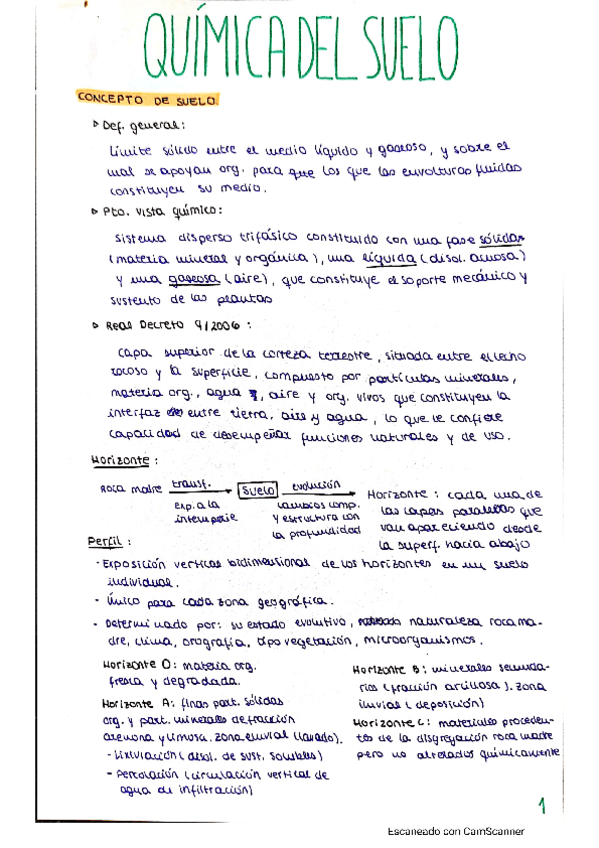 QUÍMICA DEL SUELO
CONCEPTO DE SUELO.
▹ Def. general:
Límite sólido entre el medio líquido y gaseoso, y sobre el
cual se apoyan org. para que los que las envolturas fluidas
constituyen su medio.
▹ Pto. vista químico:
Sistema disperso trifásico constituido con una fase sólida
(materia mineral y orgánica), una líquida (disol. acuosa)
y una gaseosa (aire), que constituye el soporte mecánico y
sustento de las plantas
▹ Real Decreto 9/2006:
Capa superior de la corteza terrestre, situada entre el lecho
rocoso y la superficie, compuesto por partículas minerales,
materia org., agua, aire y org. vivos que constituyen la
interfaz entre tierra, aire y agua, lo que le confiere
capacidad de desempeñar funciones naturales y de uso.
Horizonte:
Roca madre transf. exp. a la intemperie
SUELO
evolución cambios comp. y estructura con la profundidad
Horizonte: cada una de
las capas paralelas que
van apareciendo desde
la superf. hacia abajo
Perfil:
- Exposición vertical bidimensional de los horizontes en un suelo
individual.
- Único para cada zona geográfica.
- Determinado por: su estado evolutivo, naturaleza roca ma-
dre, clima, orografía, tipo vegetación, microorganismos.
Horizonte O: materia org.
fresca y degradada.
Horizonte A: finas part. sólidas
org. y part. minerales de fracción
arenosa y limosa. zona eluvial (lavado).
- Lixiviación (disol. de sust. solubles)
- Percolación (circulación vertical de
agua de infiltración)
Horizonte B: minerales secunda-
rios (fracción arcillosa). zona
iluvial (deposición)
Horizonte C: materiales proceden-
tes de la disgregación roca madre
pero no alterados químicamente
1
Escaneado con CamScanner